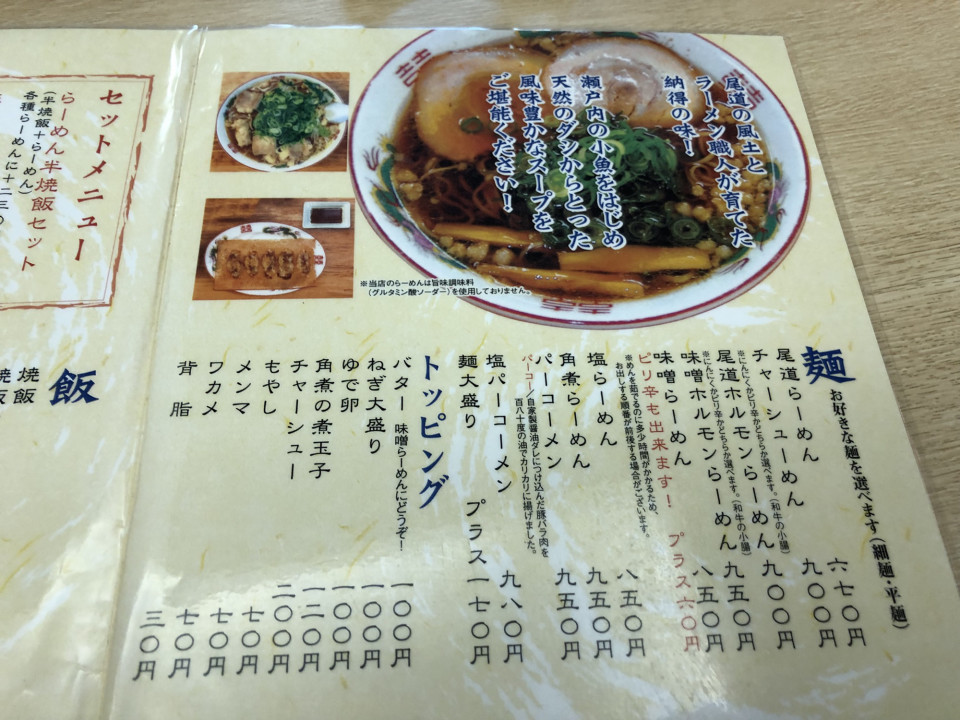 尾道の風土と
ラーメン職人が育てた
納得の味！
瀬戸内の小魚をはじめ
天然のダシからとった
風味豊かなスープを
ご堪能ください！
※当店のらーめんは旨味調味料
（グルタミン酸ソーダー）を使用しておりません。
麺 お好きな麺を選べます（細麺・平麺）
尾道らーめん 六七〇円
チャーシューらーめん 九〇〇円
※にんにくかピリ辛かどちらか選べます。（和牛の小腸）
尾道ホルモンらーめん 九〇〇円
※にんにくかピリ辛かどちらか選べます。（和牛の小腸）
味噌ホルモンらーめん 九五〇円
味噌らーめん 八五〇円
ピリ辛も出来ます！ プラス六〇円
※めんを茹でるのに多少時間がかかるため、
お出しする順番が前後する場合がございます。
塩らーめん 八五〇円
角煮らーめん 九五〇円
パーコーメン 九五〇円
パーコー／自家製醤油ダレにつけ込んだ豚バラ肉を
百八十度の油でカリカリに揚げました。
塩パーコーメン 九八〇円
麺大盛り プラス一七〇円
トッピング
バター 味噌らーめんにどうぞ！ 一〇〇円
ねぎ大盛り 一〇〇円
ゆで卵 一〇〇円
角煮の煮玉子 一二〇円
チャーシュー 二〇〇円
もやし 七〇円
メンマ 七〇円
ワカメ 七〇円
背脂 三〇円
セットメニュー
らーめん半焼飯セット
（半焼飯＋らーめん）
各種らーめんに＋二三〇
飯
焼飯